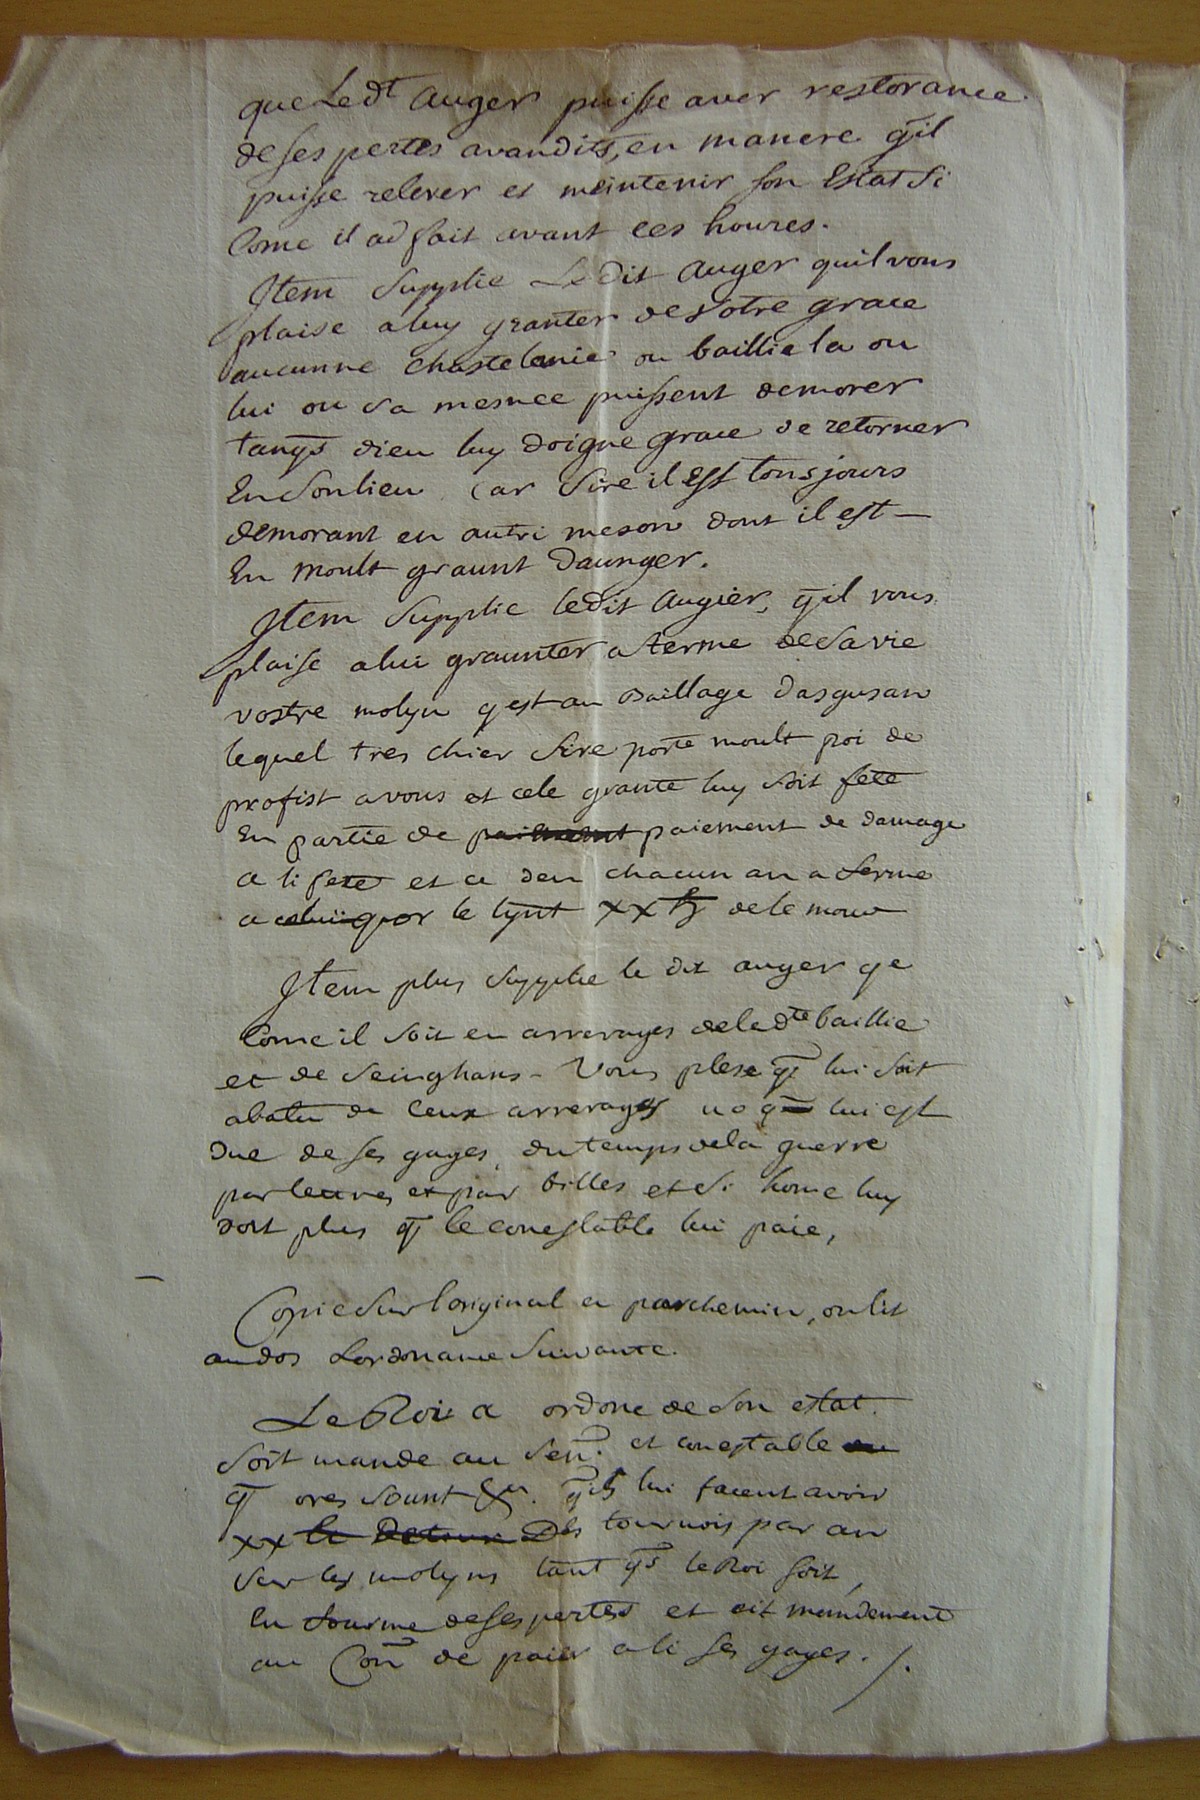 que Le dt Auger puisse aver restorance
de ses pertes avandits, en manere q̄il
puisse relever et meintenir son Estat si
Come il ad fait avant ces houres.
Item supplie Le dit Auger quil vous
plaise a luy granter de votre grace
aucunne chastelenie ou baillie la ou
lui ou sa mesnee puissent demorer
tanqs dieu luy doigne grace de retorner
En son lieu. Car Sire il Est tousjours
demorant en autri meson dont il est
En moult graunt daunger.
Item supplie ledit Augier, q̄il vous
plaise a lui graunter a terme de sa vie
vostre molyn q est au Baillage dasgusan
lequel tres chier Sire porte moult poi de
profist a vous et cele grante luy soit fete
En partie de paiement paiement de damage
a li fete et a den chacun an a ferme
a le tynt xx de le mone
Item plus supplie le dit auger qe
Come il soit en arrerages de le dte baillie
et de Seinghans - Vous plese q̄ lui soit
abatu de ceux arrerages q̄ lui est
due de ses gages, du temps de la guerre
par lettres et par billes et si home luy
doit plus q̄ le conestable lui paie,
Copie sur l'original en parchemin, on lit
au dos Lordonance suivante.
Le Roi a ordone de son estat.
soit mande au Sen. et conestable
q̄ ores sount &c. q̄ils lui facent avoir
xx tournois par an
sur les molyns tant q̄s le Roi soit,
En fourme de ses pertes et oit mandement
au Con̄ de paier a li ses gages. /.